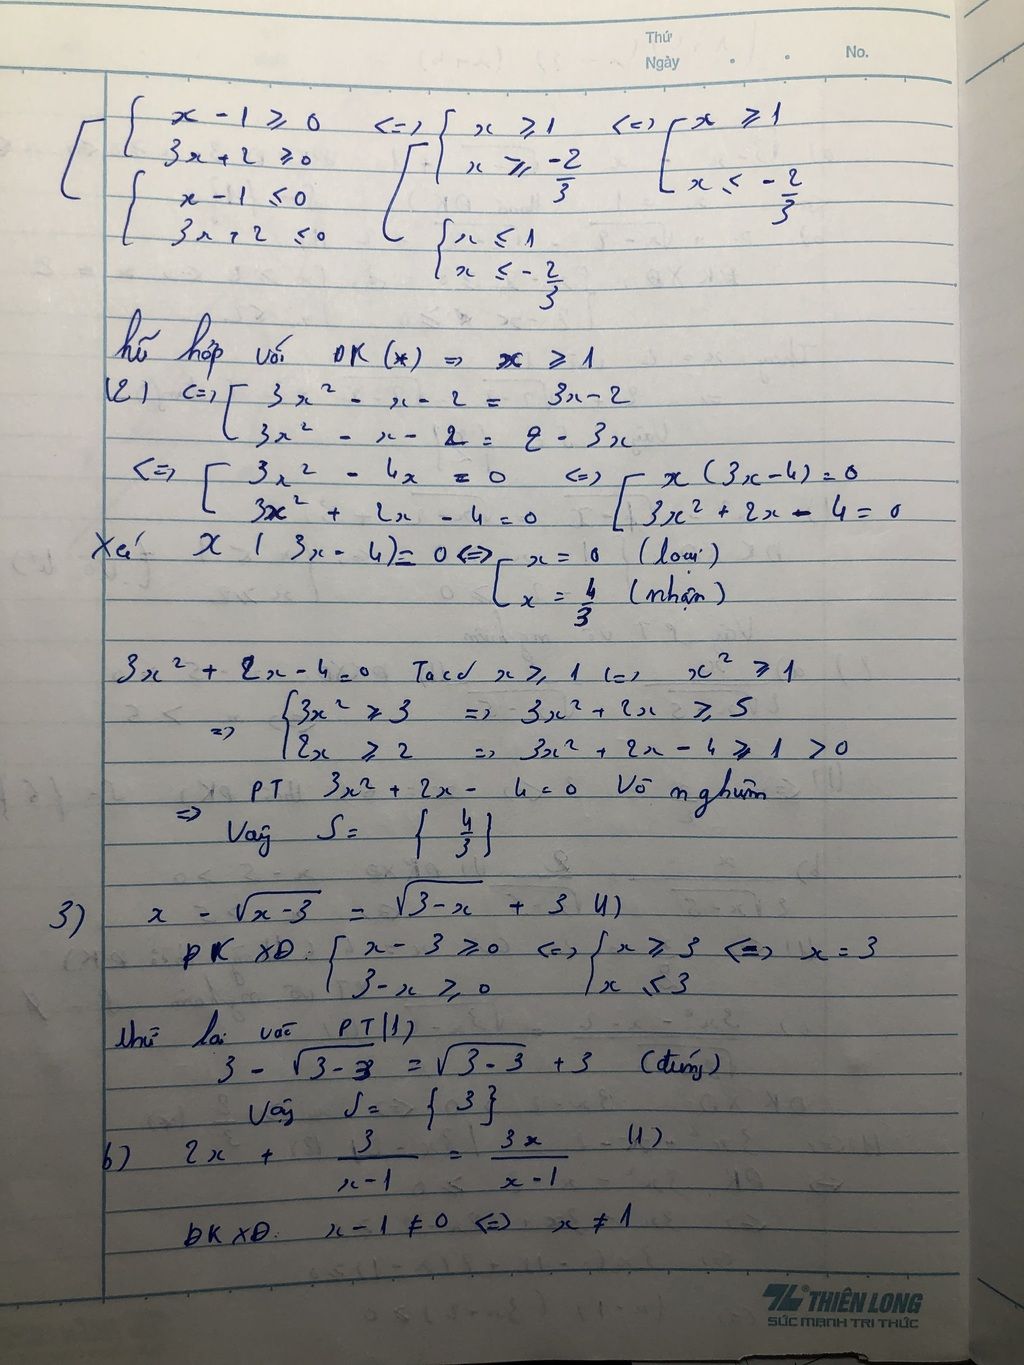 Thứ
Ngày . . No.
x - 1 ≥ 0 <=> x ≥ 1 <=> x ≥ 1
3x + 2 ≥ 0 x ≥ -2/3 x ≤ -2/3
x - 1 ≤ 0
3x + 2 ≤ 0 x ≤ 1
x ≤ -2/3
hợp với ĐK (*) => x ≥ 1
(2) <=> 3x² - x - 2 = 3x - 2
3x² - x - 2 = 2 - 3x
<=> 3x² - 4x = 0 <=> x (3x - 4) = 0
3x² + 2x - 4 = 0 3x² + 2x - 4 = 0
Xét x (3x - 4) = 0 <=> x = 0 (loại)
x = 4/3 (nhận)
3x² + 2x - 4 = 0 Ta có x ≥ 1 <=> x² ≥ 1
=> 3x² ≥ 3 => 3x² + 2x ≥ 5
2x ≥ 2 => 3x² + 2x - 4 ≥ 1 > 0
=> PT 3x² + 2x - 4 = 0 Vô nghiệm
Vậy S = {4/3}
3) x - √(x-3) = √(3-x) + 3 (1)
ĐKXĐ: x - 3 ≥ 0 <=> x ≥ 3 <=> x = 3
3 - x ≥ 0 x ≤ 3
thử lại với PT(1)
3 - √(3-3) = √(3-3) + 3 (đúng)
Vậy S = {3}
b) 2x + 3/(x-1) = 3x/(x-1) (1)
ĐKXĐ: x - 1 ≠ 0 <=> x ≠ 1
TL THIÊN LONG
SỨC MẠNH TRI THỨC